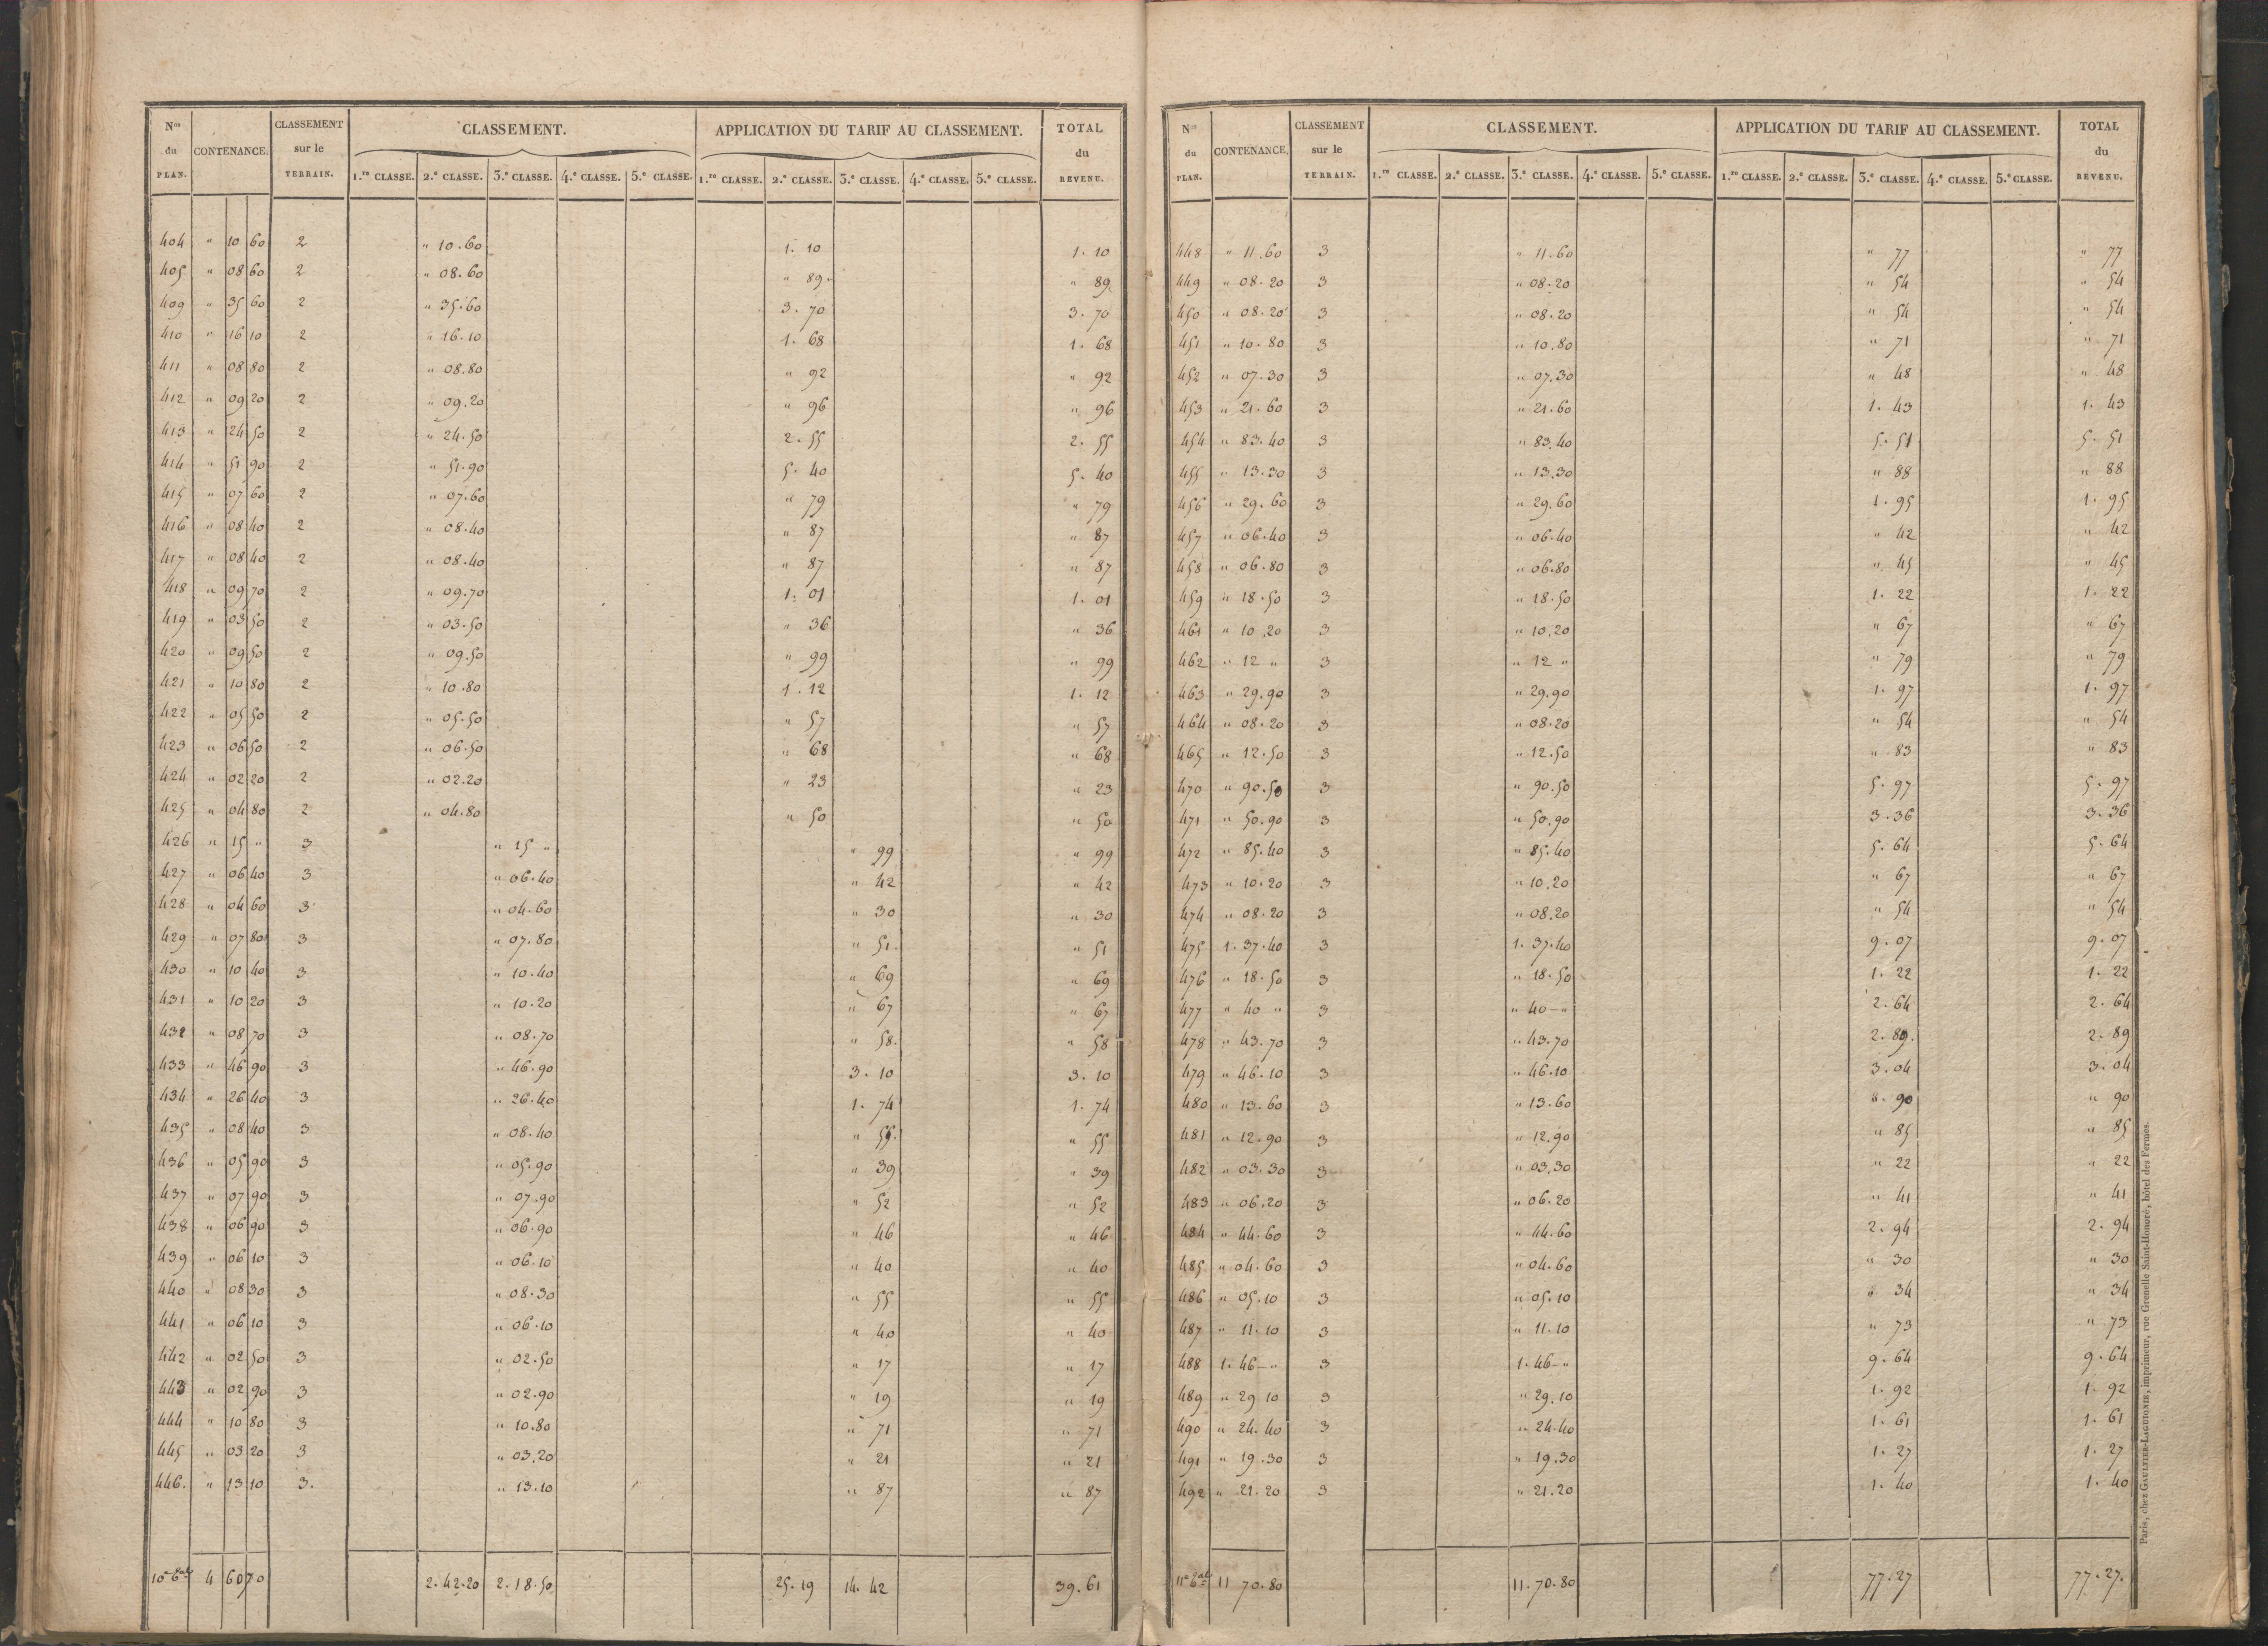 Nos du PLAN. CONTENANCE. CLASSEMENT sur le TERRAIN. CLASSEMENT. APPLICATION DU TARIF AU CLASSEMENT. TOTAL du REVENU.
1.re CLASSE. 2.e CLASSE. 3.e CLASSE. 4.e CLASSE. 5.e CLASSE. 1.re CLASSE. 2.e CLASSE. 3.e CLASSE. 4.e CLASSE. 5.e CLASSE.
404 " 10 60 2 " 10.60 1. 10 1. 10
405 " 08 60 2 " 08.60 " 89 " 89
409 " 35 60 2 " 35.60 3. 70 3. 70
410 " 16 10 2 " 16.10 1. 68 1. 68
411 " 08 80 2 " 08.80 " 92 " 92
412 " 09 20 2 " 09.20 " 96 " 96
413 " 24 50 2 " 24.50 2. 55 2. 55
414 " 51 90 2 " 51.90 5. 40 5. 40
415 " 07 60 2 " 07.60 " 79 " 79
416 " 08 40 2 " 08.40 " 87 " 87
417 " 08 40 2 " 08.40 " 87 " 87
418 " 09 70 2 " 09.70 1. 01 1. 01
419 " 03 50 2 " 03.50 " 36 " 36
420 " 09 50 2 " 09.50 " 99 " 99
421 " 10 80 2 " 10.80 1. 12 1. 12
422 " 05 50 2 " 05.50 " 57 " 57
423 " 06 50 2 " 06.50 " 68 " 68
424 " 02 20 2 " 02.20 " 23 " 23
425 " 04 80 2 " 04.80 " 50 " 50
426 " 15 " 3 " 15 " " 99 " 99
427 " 06 40 3 " 06.40 " 42 " 42
428 " 04 60 3 " 04.60 " 30 " 30
429 " 07 80 3 " 07.80 " 51. " 51
430 " 10 40 3 " 10.40 " 69 " 69
431 " 10 20 3 " 10.20 " 67 " 67
432 " 08 70 3 " 08.70 " 58. " 58
433 " 46 90 3 " 46.90 3. 10 3. 10
434 " 26 40 3 " 26.40 1. 74 1. 74
435 " 08 40 3 " 08.40 " 55. " 55
436 " 05 90 3 " 05.90 " 39 " 39
437 " 07 90 3 " 07.90 " 52 " 52
438 " 06 90 3 " 06.90 " 46 " 46
439 " 06 10 3 " 06.10 " 40 " 40
440 " 08 30 3 " 08.30 " 55 " 55
441 " 06 10 3 " 06.10 " 40 " 40
442 " 02 50 3 " 02.50 " 17 " 17
443 " 02 90 3 " 02.90 " 19 " 19
444 " 10 80 3 " 10.80 " 71 " 71
445 " 03 20 3 " 03.20 " 21 " 21
446. " 13 10 3. " 13.10 " 87 " 87
4 60 70 2.42.20 2.18.50 25.19 14.42 39.61
Nos du PLAN. CONTENANCE. CLASSEMENT sur le TERRAIN. CLASSEMENT. APPLICATION DU TARIF AU CLASSEMENT. TOTAL du REVENU.
1.re CLASSE. 2.e CLASSE. 3.e CLASSE. 4.e CLASSE. 5.e CLASSE. 1.re CLASSE. 2.e CLASSE. 3.e CLASSE. 4.e CLASSE. 5.e CLASSE.
448 " 11.60 3 " 11.60 " 77 " 77
449 " 08.20 3 " 08.20 " 54 " 54
450 " 08.20 3 " 08.20 " 54 " 54
451 " 10.80 3 " 10.80 " 71 " 71
452 " 07.30 3 " 07.30 " 48 " 48
453 " 21.60 3 " 21.60 1. 43 1. 43
454 " 83.40 3 " 83.40 5. 51 5. 51
455 " 13.30 3 " 13.30 " 88 " 88
456 " 29.60 3 " 29.60 1. 95 1. 95
457 " 06.40 3 " 06.40 " 42 " 42
458 " 06.80 3 " 06.80 " 45 " 45
459 " 18.50 3 " 18.50 1. 22 1. 22
461 " 10.20 3 " 10.20 " 67 " 67
462 " 12 " 3 " 12 " " 79 " 79
463 " 29.90 3 " 29.90 1. 97 1. 97
464 " 08.20 3 " 08.20 " 54 " 54
465 " 12.50 3 " 12.50 " 83 " 83
470 " 90.50 3 " 90.50 5. 97 5. 97
471 " 50.90 3 " 50.90 3. 36 3. 36
472 " 85.40 3 " 85.40 5. 64 5. 64
473 " 10.20 3 " 10.20 " 67 " 67
474 " 08.20 3 " 08.20 " 54 " 54
475 1.37.40 3 1.37.40 9. 07 9. 07
476 " 18.50 3 " 18.50 1. 22 1. 22
477 " 40 " 3 " 40 - " 2. 64 2. 64
478 " 43.70 3 " 43.70 2. 89. 2. 89
479 " 46.10 3 " 46.10 3. 04 3. 04
480 " 13.60 3 " 13.60 " 90 " 90
481 " 12.90 3 " 12.90 " 85 " 85
482 " 03.30 3 " 03.30 " 22 " 22
483 " 06.20 3 " 06.20 " 41 " 41
484 " 44.60 3 " 44.60 2. 94 2. 94
485 " 04.60 3 " 04.60 " 30 " 30
486 " 05.10 3 " 05.10 " 34 " 34
487 " 11.10 3 " 11.10 " 73 " 73
488 1.46 - " 3 1.46 - " 9. 64 9. 64
489 " 29 10 3 " 29.10 1. 92 1. 92
490 " 24.40 3 " 24.40 1. 61 1. 61
491 " 19.30 3 " 19.30 1. 27 1. 27
492 " 21.20 3 " 21.20 1. 40 1. 40
11 70.80 11.70.80 77.27 77.27.
Paris, chez GAULTIER-LAGUIONIE, imprimeur, rue Grenelle Saint-Honoré, hôtel des Fermes.